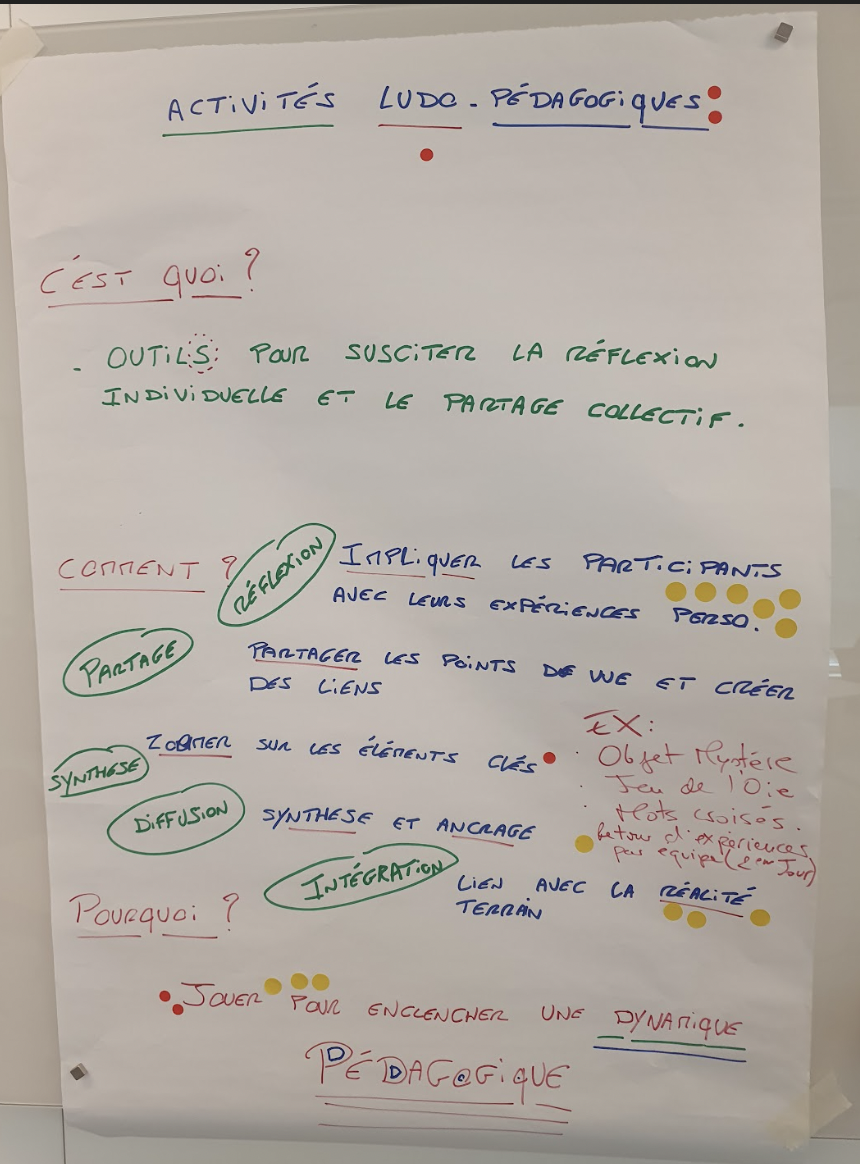 ACTIVITÉS LUDO-PÉDAGOGIQUES:
C'EST QUOI ?
- OUTILS: POUR SUSCITER LA RÉFLEXION
INDIVIDUELLE ET LE PARTAGE COLLECTIF.
COMMENT ?
RÉFLEXION
IMPLIQUER LES PARTICIPANTS
AVEC LEURS EXPÉRIENCES PERSO.
PARTAGE
PARTAGER LES POINTS DE VUE ET CRÉER
DES LIENS
SYNTHESE
ZOOMER SUR LES ÉLÉMENTS CLÉS
DIFFUSION
SYNTHESE ET ANCRAGE
EX:
· Objet Mystère
· Jeu de l'Oie
· Mots croisés.
Retour d'expériences
par équipe (2em Jour)
INTÉGRATION
LIEN AVEC LA RÉALITÉ
TERRAIN
POURQUOI ?
JOUER POUR ENCLENCHER UNE DYNAMIQUE
PÉDAGOGIQUE